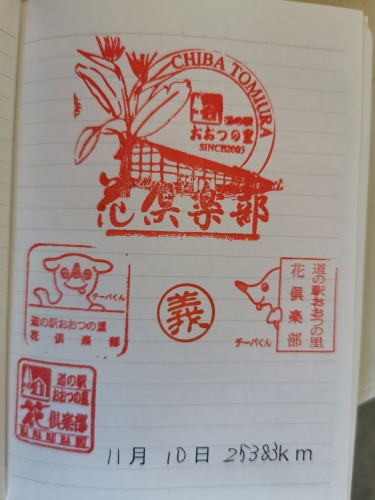 CHIBA TOMIURA
道の駅
おおつの里
SINCE2003
花倶楽部
チーバくん
道の駅おおつの里
花倶楽部
義
道の駅おおつの里
花倶楽部
チーバくん
道の駅
おおつの里
花倶楽部
11月 10日 25383km